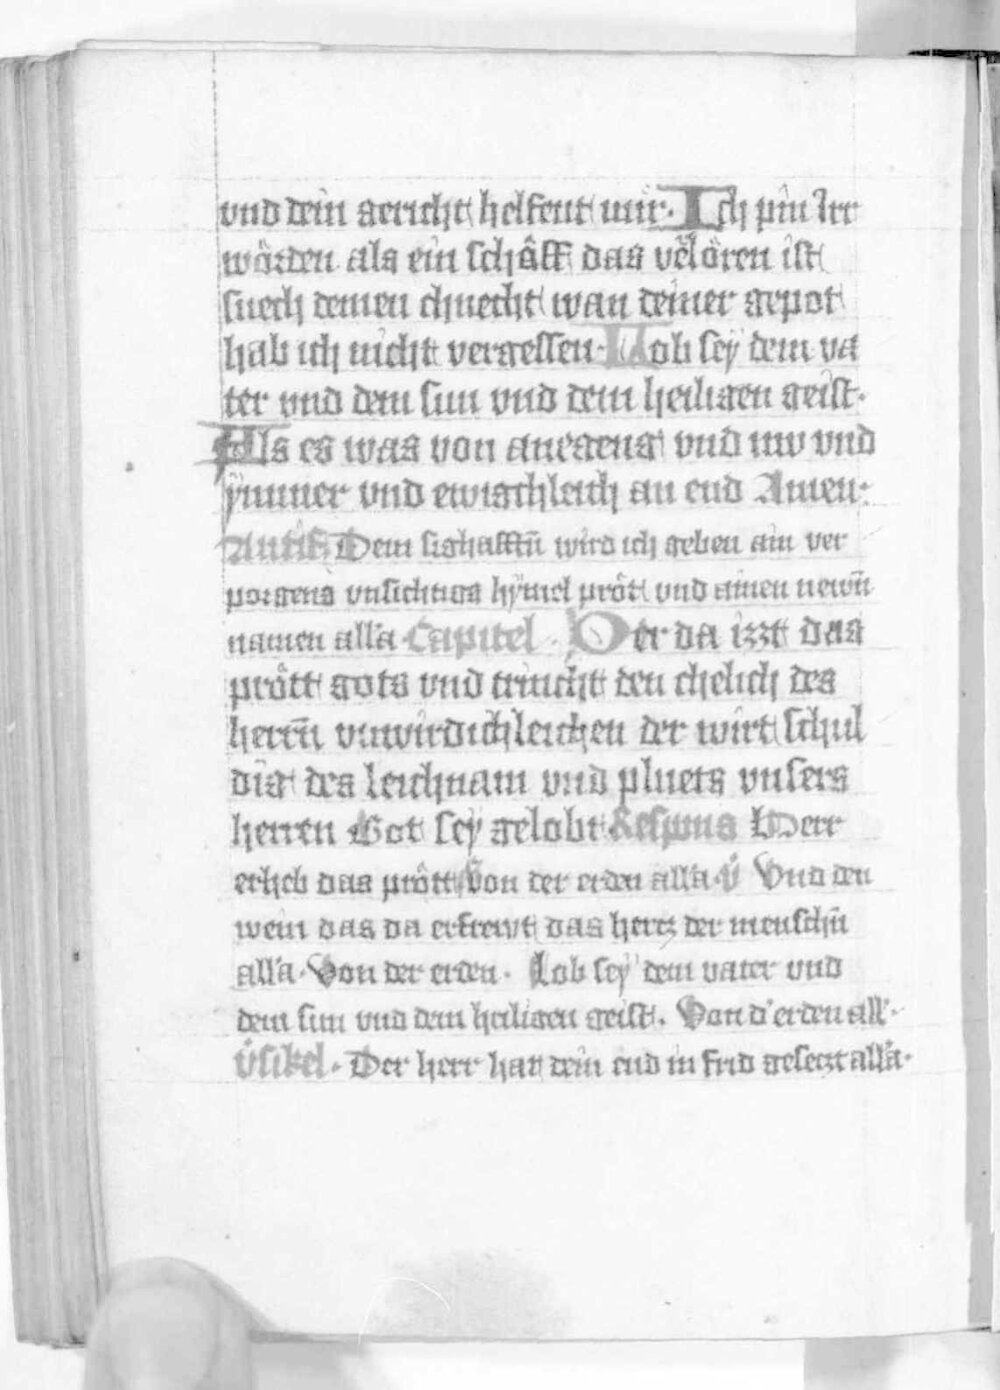 vnd dein gericht helfent mir. Ich pin Irr
wörden als ein schäff das vˀlören ist
suech deinen chnecht wan deiner gepot
hab ich nicht vergessen. Lob sey dem va
ter vnd dem sun vnd dem heiligen geist.
Als es was von anegeng vnd nw vnd
ÿmmer vnd ewigchleich an end Amen.
Antif Dem sighafftn̄ wird ich geben ain ver
porgens vnsichtigs hÿmel prôt vnd ainen newn̄
namen alla Capitel. Der da izzt das
prött gots vnd trincht den chelich des
herrn̄ vnwirdichleichen der wirt schul
dig des leichnam vnd pluets vnsers
herren Got sey gelobt Respons Herr
erheb das prött Von der erden alla. V̇ Vnd den
wein das da erfrewt das hertz der menschn̄
alla. Von der erden. Lob seÿ dem vater vnd
dem sun vnd dem heiligen geist. Von dˀ erden all.
V̇sikel. Der herr hat dein end in frid gesetzt alla.